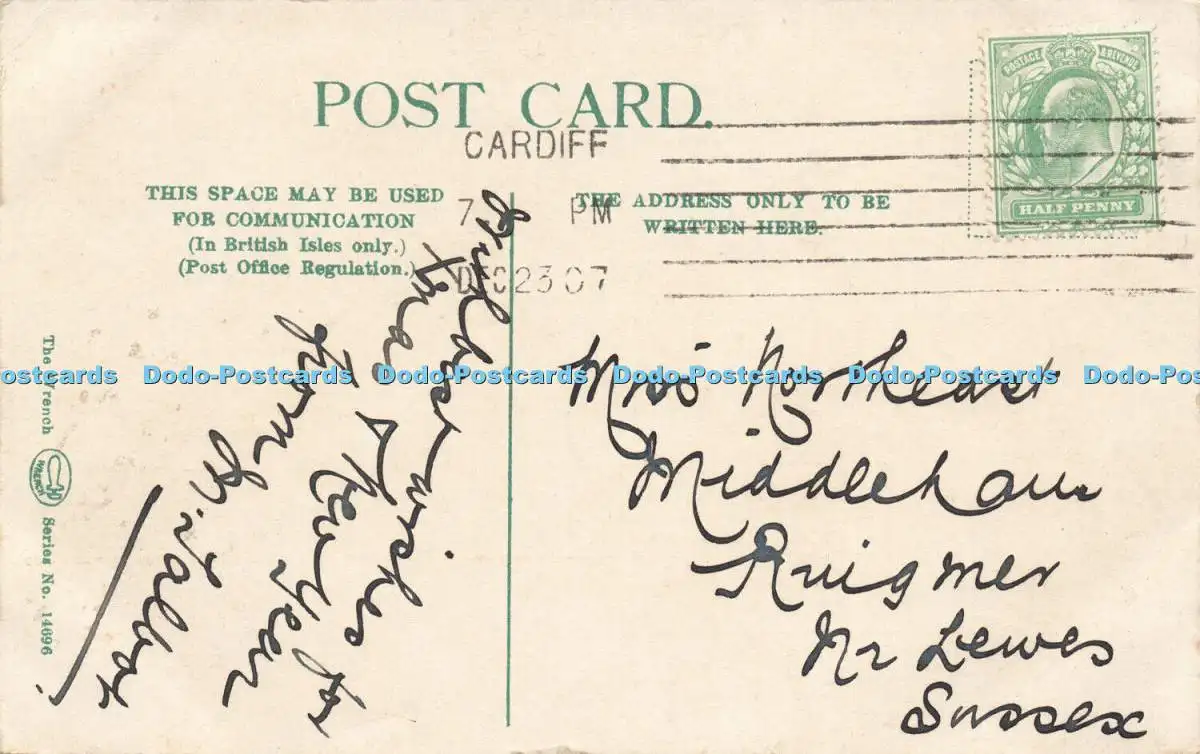 POST CARD.
CARDIFF
7 PM
DEC 23 07
POSTAGE & REVENUE
HALF PENNY
THIS SPACE MAY BE USED
FOR COMMUNICATION
(In British Isles only.)
(Post Office Regulation.)
THE ADDRESS ONLY TO BE
WRITTEN HERE.
best wishes for
Xmas & New Year
from
Mrs Northeast
Middleham
Ringmer
Nr Lewes
Sussex
The Wrench
WRENCH
Series No. 14696
Dodo-Postcards Dodo-Postcards Dodo-Postcards Dodo-Postcards Dodo-Postcards